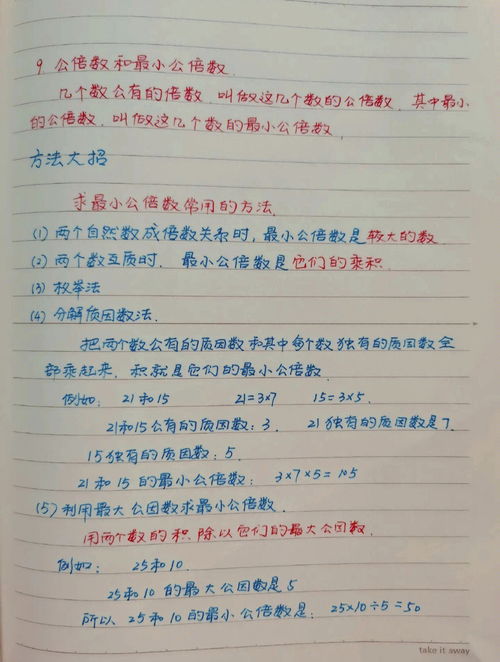 9. 公倍数和最小公倍数.
几个数公有的倍数.叫做这几个数的公倍数.其中最小
的公倍数.叫做这几个数的最小公倍数.
方法大招
求最小公倍数常用的方法.
(1) 两个自然数成倍数关系时,最小公倍数是较大的数
(2) 两个数互质时. 最小公倍数是它们的乘积.
(3) 枚举法
(4) 分解质因数法.
把两个数公有的质因数和其中每个数独有的质因数全
部乘起来.积就是它们的最小公倍数.
例如: 21和15 21=3×7 15=3×5.
21和15公有的质因数:3. 21独有的质因数是7.
15独有的质因数:5.
21和15的最小公倍数: 3×7×5=105
(5) 利用最大公因数求最小公倍数.
用两个数的积除以它们的最大公因数.
例如: 25和10.
25和10的最大公因数是5
所以25和10的最小公倍数是: 25×10÷5=50
take it away